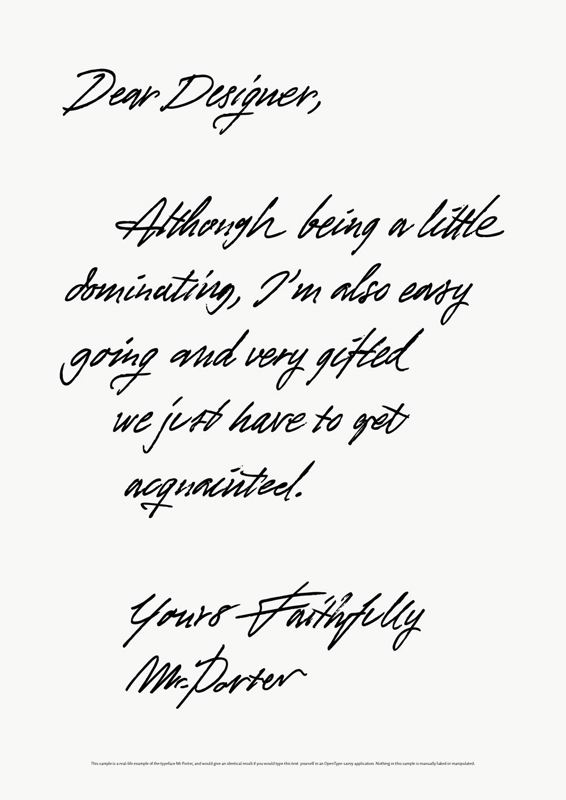 Dear Designer,
Although being a little
dominating, I'm also easy
going and very gifted
we just have to get
acquainted.
Yours Faithfully
Mr. Porter
This sample is a real-life example of the typeface Mr Porter, and would give an identical result if you would type this text yourself in an OpenType-savvy application. Nothing in this sample is manually faked or manipulated.